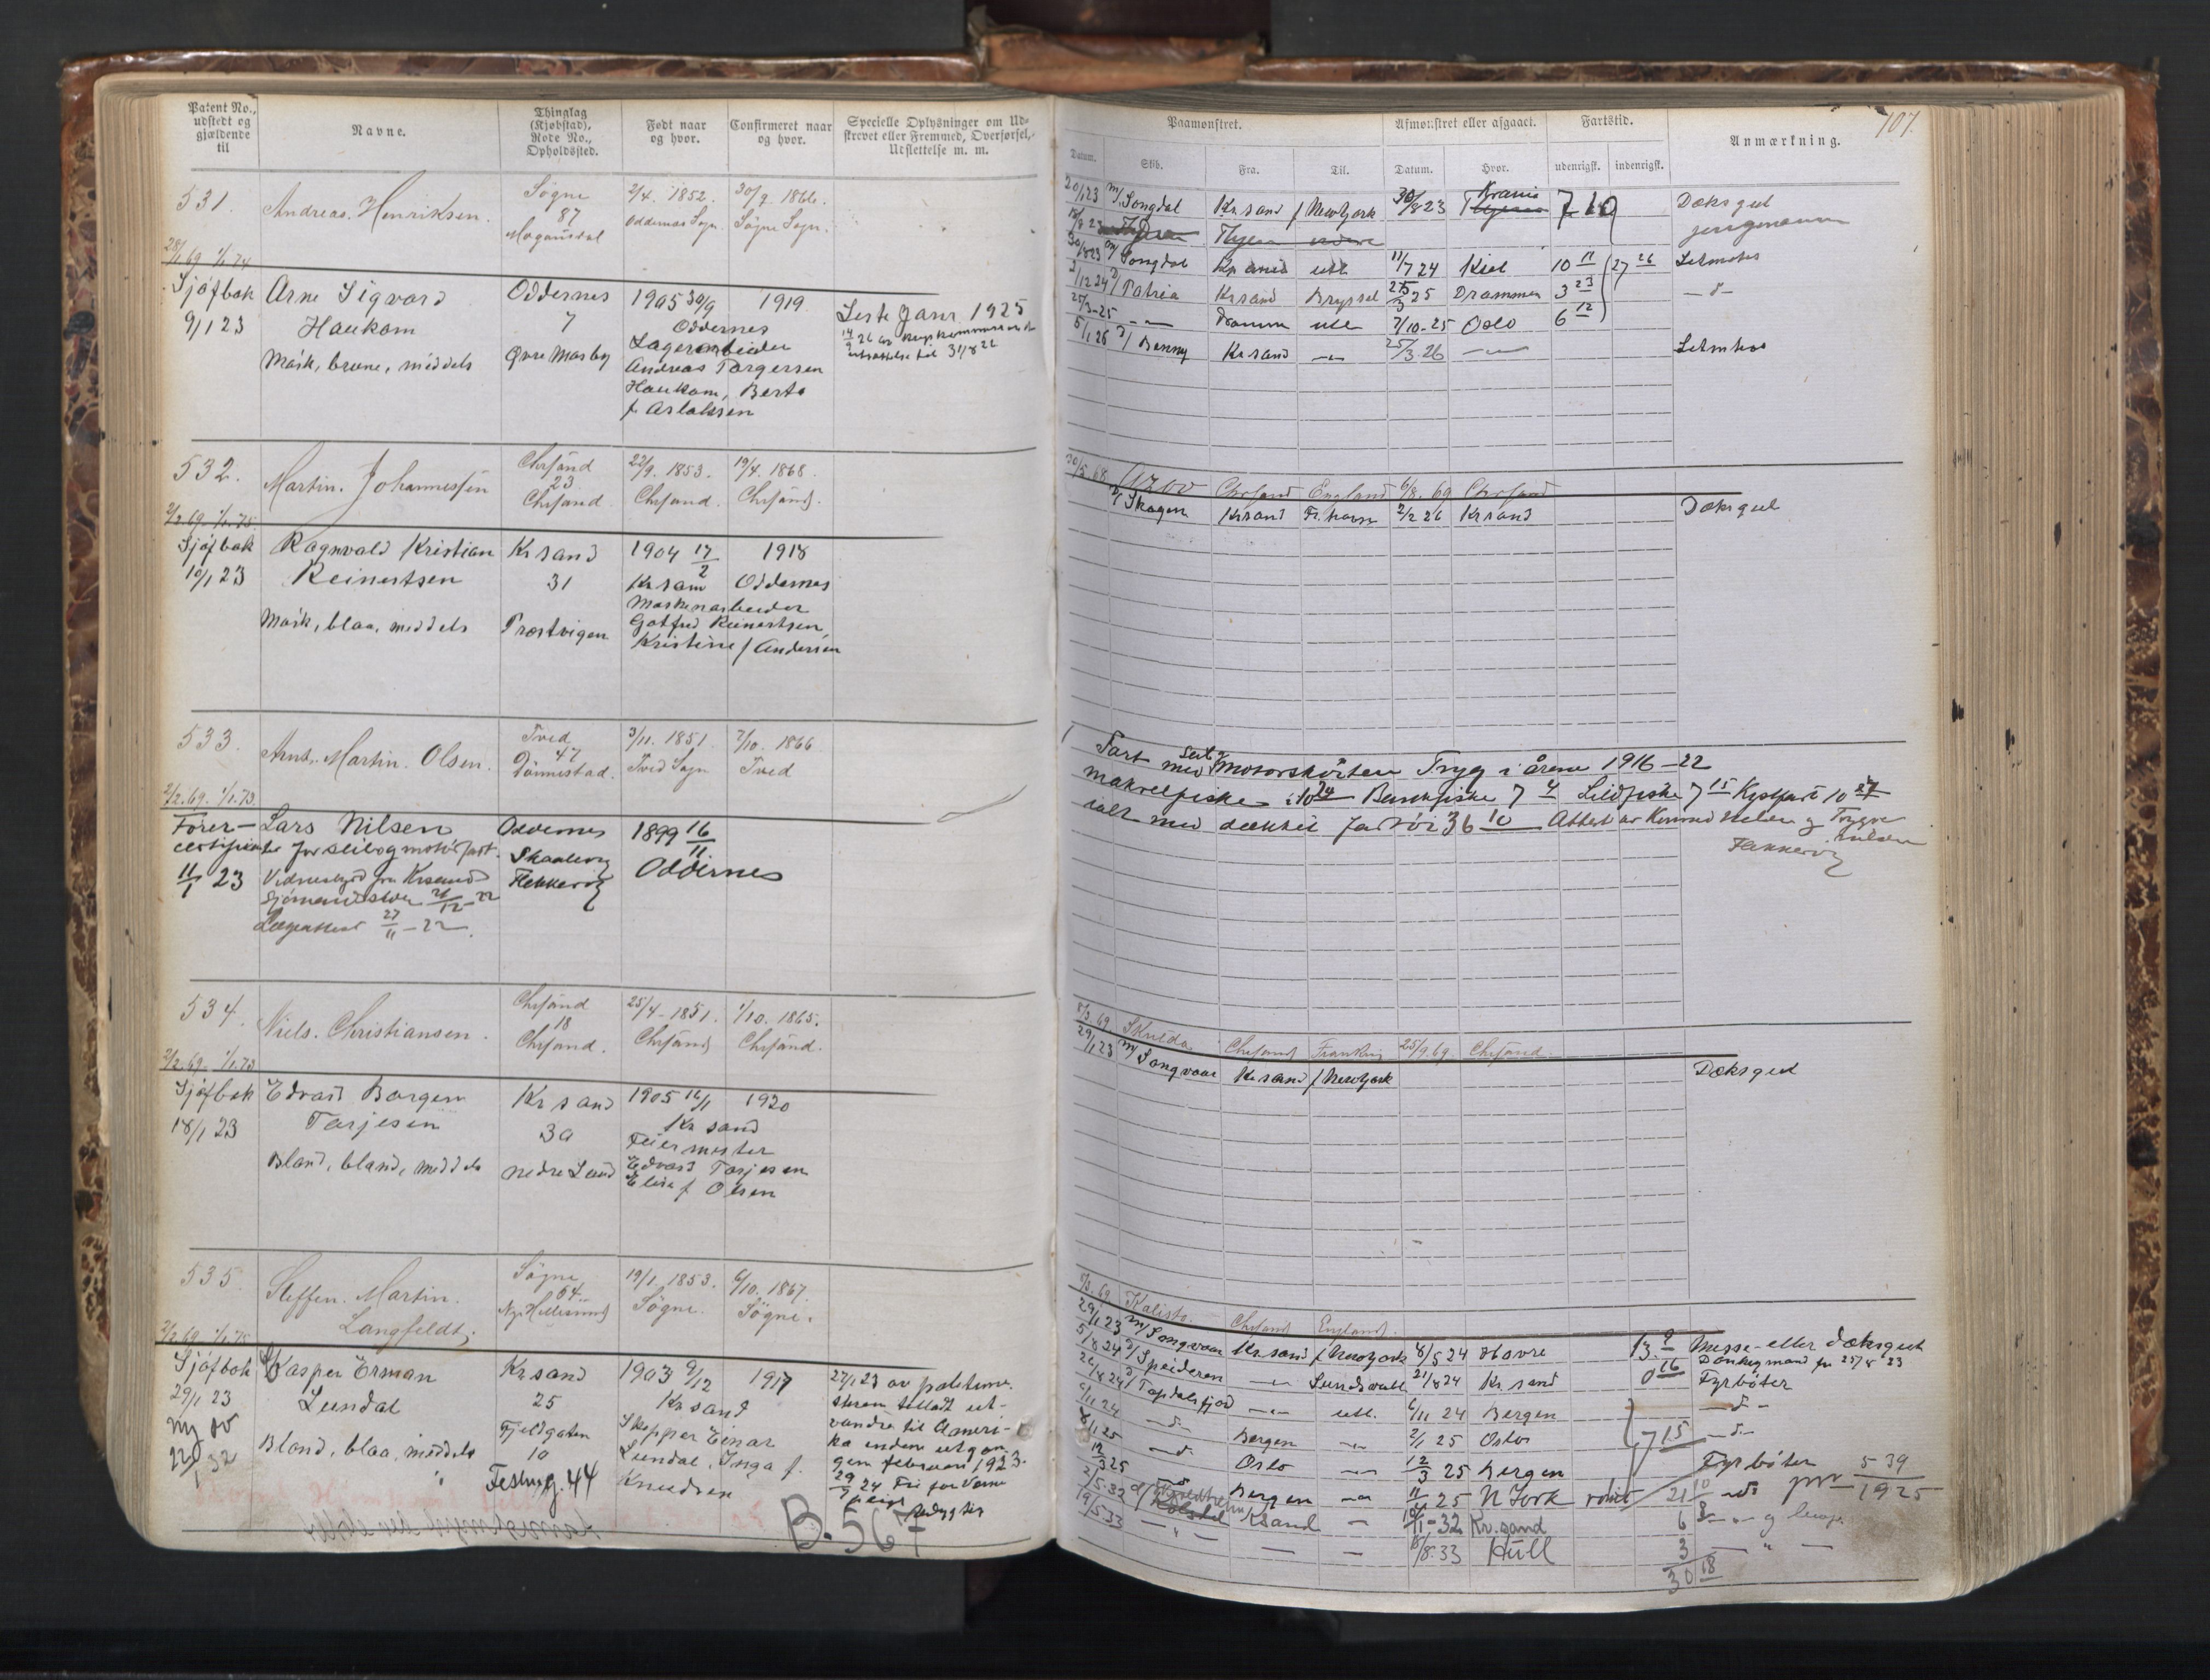 Patent No., udstedt og gjældende til
Navne.
Thinglag (Kjøbstad), Rode No., Opholdssted.
Født naar og hvor.
Confirmeret naar og hvor.
Specielle Oplysninger om Udskrevet eller Fremmed, Overførsel, Udslettelse m. m.
531.
Andreas. Henriksen.
Søgne
87
2/4. 1852.
Oddernes Sogn.
30/9. 1866.
Søgne Sogn.
28/1 69 1/1 74
Sjøfbok
9/1 23
Arne Sigvard
Haukom
Mørk, brune, middels
Oddernes
7
Øvre Mosby
1905 30/9
1919
Oddernes
Lagerarbeider
Andreas Torgersen
Haukom, Berta
f. Aslaksen
Leste Janr 1925
532.
Martin. Johannessen
Chrsand
23
Chrsand
22/9. 1853.
Chrsand.
19/4. 1868.
Chrsand.
2/2 69 1/1 75.
Sjøfbok
10/1 23
Ragnvald Kristian
Reinertsen
Mørk, blaa, middels
Kr sand
31
Præstvigen
1904 17/2
1918
Kr sand
Oddernes
Maskinarbeider
Gotfred Reinertsen,
Kristine f Andersen
533.
Arnt. Martin. Olsen.
Tved
47
Dønnestad.
3/11. 1851.
Tved Sogn
7/10. 1866
Tved
2/2. 69. 1/1. 73.
Fører-
certifikat for seil og motorfart.
11/1 23
Lars Nilsen
Vidnesbyrd fra Krsand
Sjømandsskole 21/12-22
Lægeattest 27/11-22.
Oddernes
Skaalevig
Flekkerø
1899 16/11
Oddernes
534.
Niels. Christiansen.
Chrsand
18
Chrsand.
25/4. 1851.
Chrsand
1/10. 1865.
Chrsand.
2/2. 69. 1/1. 73
Sjøfbok
18/1 23
Edvard Borgen
Torjesen
Bland, bland, middels
Kr sand
3a
nedre Lund
1905 16/1
1920
Kr sand
Feiermester
Edvard Torjesen
Elise f Olsen
535.
Steffen. Martin.
Langfeldt.
Søgne
64
Ny Hellesund
19/1. 1853.
Søgne.
6/10. 1867.
Søgne.
2/2 69 1/1. 75
Sjøfbok
29/1 23
Ny do
22/1 32
Kasper Erman
Lundal
Bland, blaa, middels
Kr sand
25
Fjeldgaten
10
Festng. 44
1903 9/12
1917
Kr sand
Skipper Einar
Lundal, Inga f.
Knudsen
27/1 23 av politime-
steren tilladt ut-
vandre til Ameri-
ka inden utgan-
gen februar 1923.
29/9 24 Fri for Værne-
pligt
B. 567
107.
Paamønstret.
Afmønstret eller afgaaet.
Fartstid.
Anmærkning.
Datum.
Skib.
Fra.
Til.
Datum.
Hvor.
udenrigsk.
indenrigsk.
20/1 23 m/ Songdal Kr. sand f NewYork 30/8 23 Krania 7 10 Dæksgut
jungmann
30/8 23 m/ Songdal Kr sand utl 11/7 24 Kiel 10 11 27 26 Letmatros
2/12 24 d/ Patria Krsand Bryssel 25/3 25 Drammen 3 23 -d-
25/3-25 -"- Dramm utl 7/10-25 Oslo 6 12
5/1 26 d/ Benny Kr sand -"- 25/3. 26 -"- Letmtros
30/5. 68. Chrsand England 6/8. 69 Chrsand
d/ Skagen Krsand Fr. havn 2/2 26 Krsand Dæksgut
Fart med Motorskøiten Tryg i årene 1916-22
makrelfiske i 10 24 Bankfiske 7 4 Sildfiske 7 15 Kystfart 10 27
ialt med dækket fartøi 36 10 Attest av Konrad Nielsen og Trygve
Nilsen
Flekkerø
8/3. 69. Skulda Chrsand Frankrig 25/9. 69. Chrsand
29/1 23 m/ Songvaar Kr. sand f NewYork Dæksgut
8/3. 69. Kalisto. Chrsand England.
29/1 23 m/ Songvaar Kr. sand f NewYork 8/5 24 Havre 13. 9 Messe- eller dæksgut
Donkeymand fra 25/8 23
5/8 24 d/ Speideren -"- Sundsvall 21/8 24 Kr. sand 0 16 Fyrbøter
26/8 24 d/ Topdalsfjord -"- utl. 6/11 24 Bergen -d-
6/11 24 -d- Bergen -"- 2/1 25 Oslo 7 15 -d-
8/1 25 -d- Oslo -"- 12/3 25 Bergen Fyrbøter
12/3 25 Bergen -"- 25 N York rømt 21 10 -d- 539/1925
2/5. 32 Ksand - -32 Kr. sand 6 8
19/5 33 -"- - - 18/8. 33 Hull 3 - " -
30 18